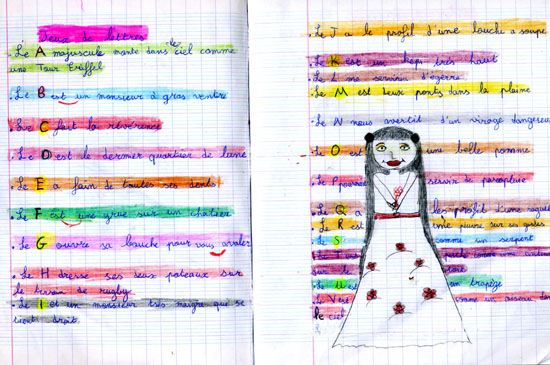 Jeux de lettres
. Le A majuscule monte dans le ciel comme
une Tour Eriffel
. Le B est un monsieur à gros ventre
. Le C fait la révérence
. Le D est le dernier quartier de lune
. Le E a fain de toutes ses dents
. Le F est une grue sur un chatier
. Le G ouvre sa bouche pour vous avaler
. Le H dresse ses deux poteaux sur
le terrain de rugby
. Le I et un monsieur très maigre que se
tient droit.
. Le J a le profil d'une louche a soupe
. Le K est un képi très haut
. Le L me servira d'
. Le M est deux ponts dans la plaine
. Le N nous avertit d'un virage dangereux
. Le O est une belle pomme
. Le P pourrait servir de parapluie
. Le Q a les profil d'une
. Le R est une plume sur
. Le S comme un serpent
. Le
sur le
. Le U est un trapèze
. Le V est comme un oiseau dans
le ciel